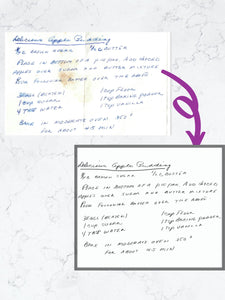 Delicious Apple Pudding
1/2 C BROWN SUGAR 1/2 C BUTTER
PLACE IN BOTTOM OF A PIE PAN. ADD SLICED
APPLES OVER SUGAR AND BUTTER MIXTURE
POUR FOLLOWING BATTER OVER THE APPLES
2 EGGS (BEATEN) 1 CUP FLOUR
1 CUP SUGAR 1 tsp BAKING POWDER
4 TBS WATER 1 tsp VANILLA
BAKE IN MODERATE OVEN 350°
FOR ABOUT 45 MIN
Delicious Apple Pudding
1/2 C BROWN SUGAR 1/2 C BUTTER
PLACE IN BOTTOM OF A PIE PAN. ADD SLICED
APPLES OVER SUGAR AND BUTTER MIXTURE
POUR FOLLOWING BATTER OVER THE APPLES
2 EGGS (BEATEN) 1 CUP FLOUR
1 CUP SUGAR 1 tsp BAKING POWDER
4 TBS WATER 1 tsp VANILLA
BAKE IN MODERATE OVEN 350°
FOR ABOUT 45 MIN